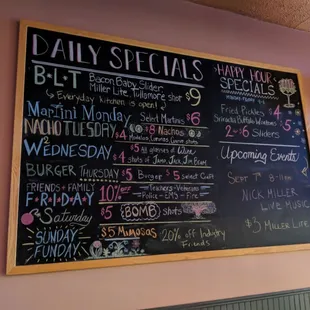 DAILY SPECIALS
B·L·T Bacon Baby Slider
Miller Lite, Tullamore shot $9
Everyday kitchen is open!
Martini Monday Select Martinis $6
NACHO TUESDAY $8 Nachos
$4
WEDNESDAY $5 All glasses of Wine
$4 shots of Jame, Jack, Jim Beam
BURGER THURSDAY $5 Burger $5 Select Craft
FRIENDS + FAMILY
FRIDAY 10% OFF Teachers - Veterans
Police - EMS - Fire
Saturday $5 {BOMB} shots
SUNDAY
FUNDAY
$5 Mimosas 20% off Industry
Friends
HAPPY HOUR
SPECIALS
Fried Pickles $4
Sriracha Buffalo Wontons $5
2 for $6 Sliders
Upcoming Events
Sept 7th
NICK MILLER
LIVE MUSIC
$3 MILLER LITE